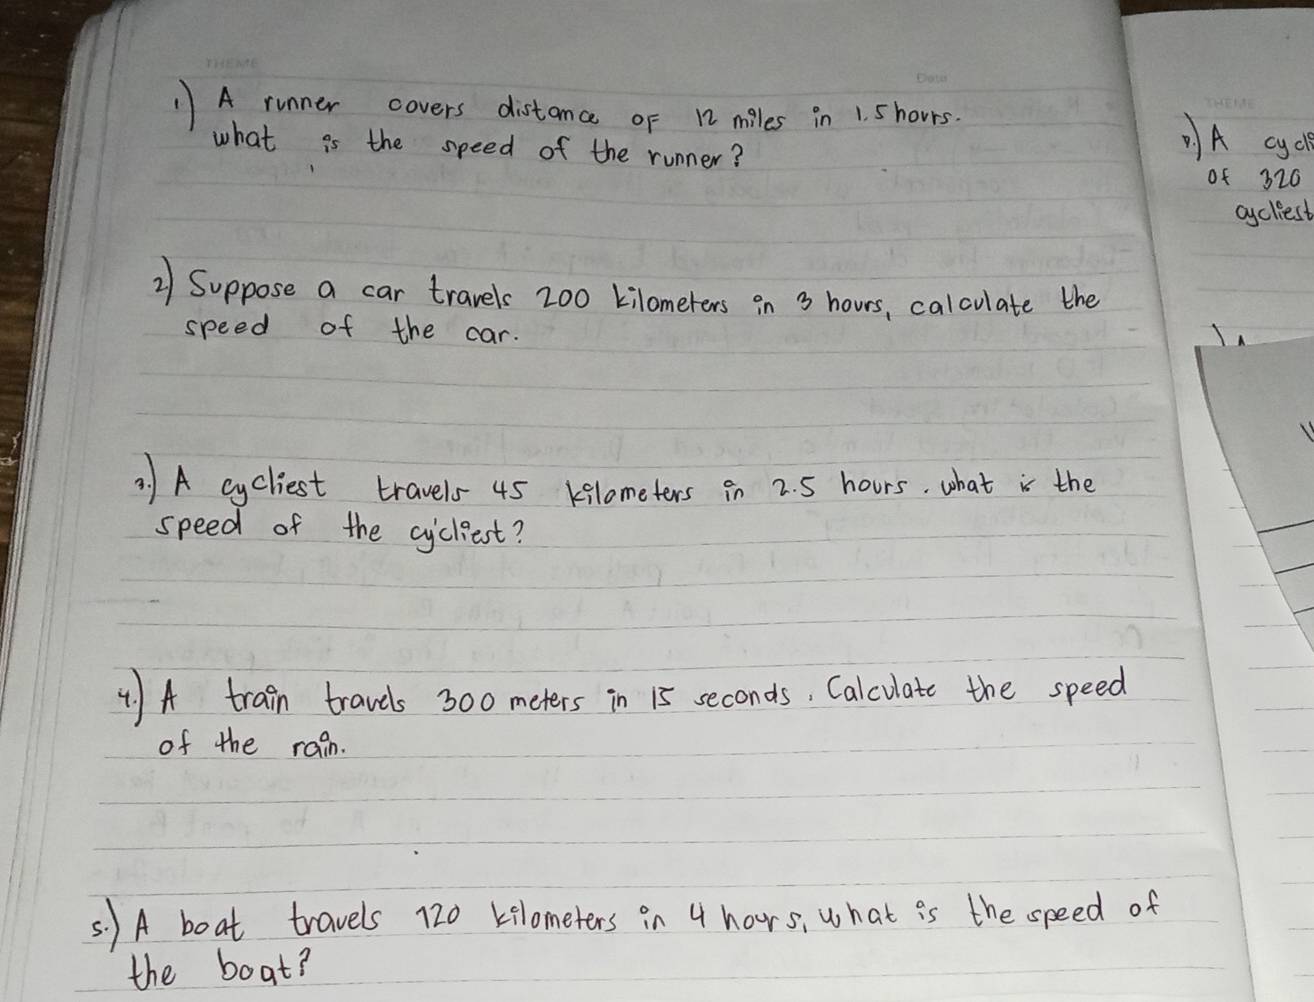 THEME
Date
1.) A runner covers distance of 12 miles in 1.5 hours.
what is the speed of the runner?
2) Suppose a car travels 200 kilometers in 3 hours, calculate the
speed of the car.
3.) A cycliest travels 45 kilometers in 2.5 hours. what is the
speed of the cycliest?
4.) A train travels 300 meters in 15 seconds. Calculate the speed
of the rain.
5.) A boat travels 120 kilometers in 4 hours, what is the speed of
the boat?
THEME
A cycli
of 320
cycliest